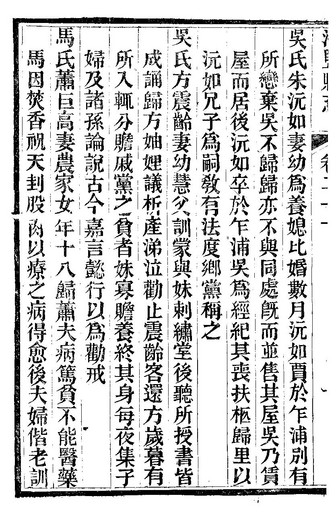 吳氏朱沅如妻幼爲養媳比婚數月沅如賈於乍浦別有
所戀棄吳不歸歸亦不與同處旣而並售其屋吳乃賃
屋而居後沅如卒於乍浦吳爲經紀其喪扶柩歸里以
沅如兄子爲嗣敎有法度鄉黨稱之
吳氏方震齡妻幼慧父訓蒙與妹刺繡堂後聽所授書皆
成誦歸方妯娌議析產涕泣勸止震齡客還方歲暮有
所入輒分贍戚黨之貧者妹寡贍養終其身每夜集子
婦及諸孫論說古今嘉言懿行以爲勸戒
馬氏蕭巨高妻農家女年十八歸蕭夫病篤貧不能醫藥
馬因焚香祝天刲股肉以療之病得愈後夫婦偕老訓